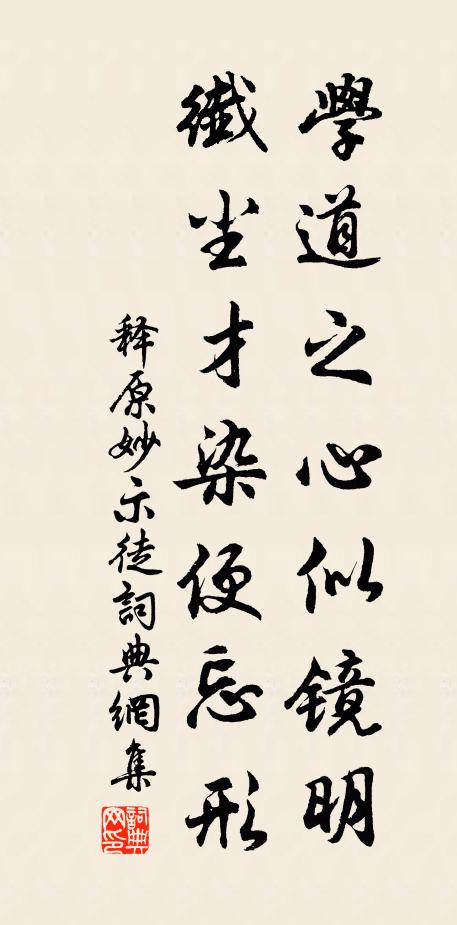 學道之心似鏡明
纖尘才染便忘形
释原妙示徒詞典網集
詞典网印